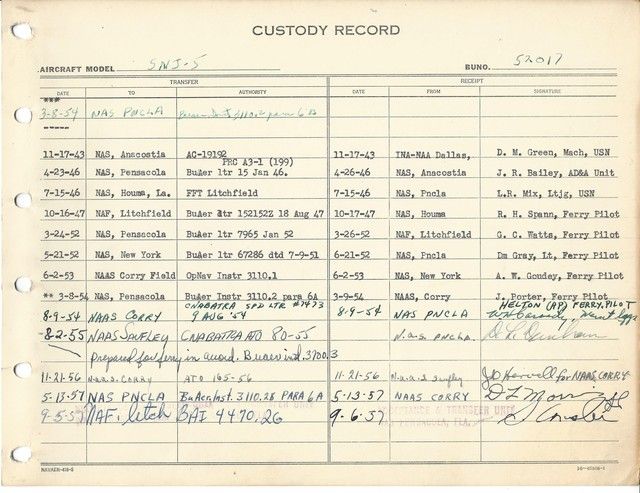 CUSTODY RECORD
AIRCRAFT MODEL SNJ-5 BUNO. 52017
TRANSFER RECEIPT
DATE TO AUTHORITY DATE FROM SIGNATURE
***
3-8-54 NAS PNCLA Buaer Inst 3110.2 para 6A
-----
11-17-43 NAS, Anacostia AC-19192 11-17-43 INA-NAA Dallas, D. M. Green, Mach, USN
PRC A3-1 (199)
4-23-46 NAS, Pensacola BuAer ltr 15 Jan 46. 4-26-46 NAS, Anacostia J. R. Bailey, AD&A Unit
7-15-46 NAS, Houma, La. FFT Litchfield 7-15-46 NAS, Pncla L.R. Mix, Ltjg, USN
10-16-47 NAF, Litchfield BuAer ltr 152152Z 18 Aug 47 10-17-47 NAS, Houma R. H. Spann, Ferry Pilot
3-24-52 NAS, Pensacola BuAer ltr 7965 Jan 52 3-26-52 NAF, Litchfield G. C. Watts, Ferry Pilot
5-21-52 NAS, New York BuAer ltr 67286 dtd 7-9-51 6-21-52 NAS, Pncla Dm Gray, Lt, Ferry Pilot
6-2-53 NAAS Corry Field OpNav Instr 3110.1 6-2-53 NAS, New York A. W. Goudey, Ferry Pilot
** 3-8-54 NAS, Pensacola BuAer Instr 3110.2 para 6A 3-9-54 NAAS, Corry J. Porter, Ferry Pilot
CNABATRA SPD LTR #7473 HELTON (AP) FERRY, PILOT
8-9-54 NAAS CORRY 9 AUG '54 8-9-54 NAS PNCLA
8-2-55 NAAS SAUFLEY CNABATRA ATO 80-55 N.A.S. PNCLA.
Prepared for ferry in accord. Buaer inst. 3700.3
11-21-56 N.A.A.S. CORRY ATO 165-56 11-21-56 N.A.A.S Saufley JO Harvell for NAAS, CORRY
5-13-57 NAS PNCLA BuAer Inst. 3110.2B PARA 6A 5-13-57 NAAS CORRY
9-5-57 NAF, Litch BAI 4470.26 9-6-57
ACCEPTANCE & TRANSFER UNIT
PENSACOLA, FLA.
NAVAER-418-S